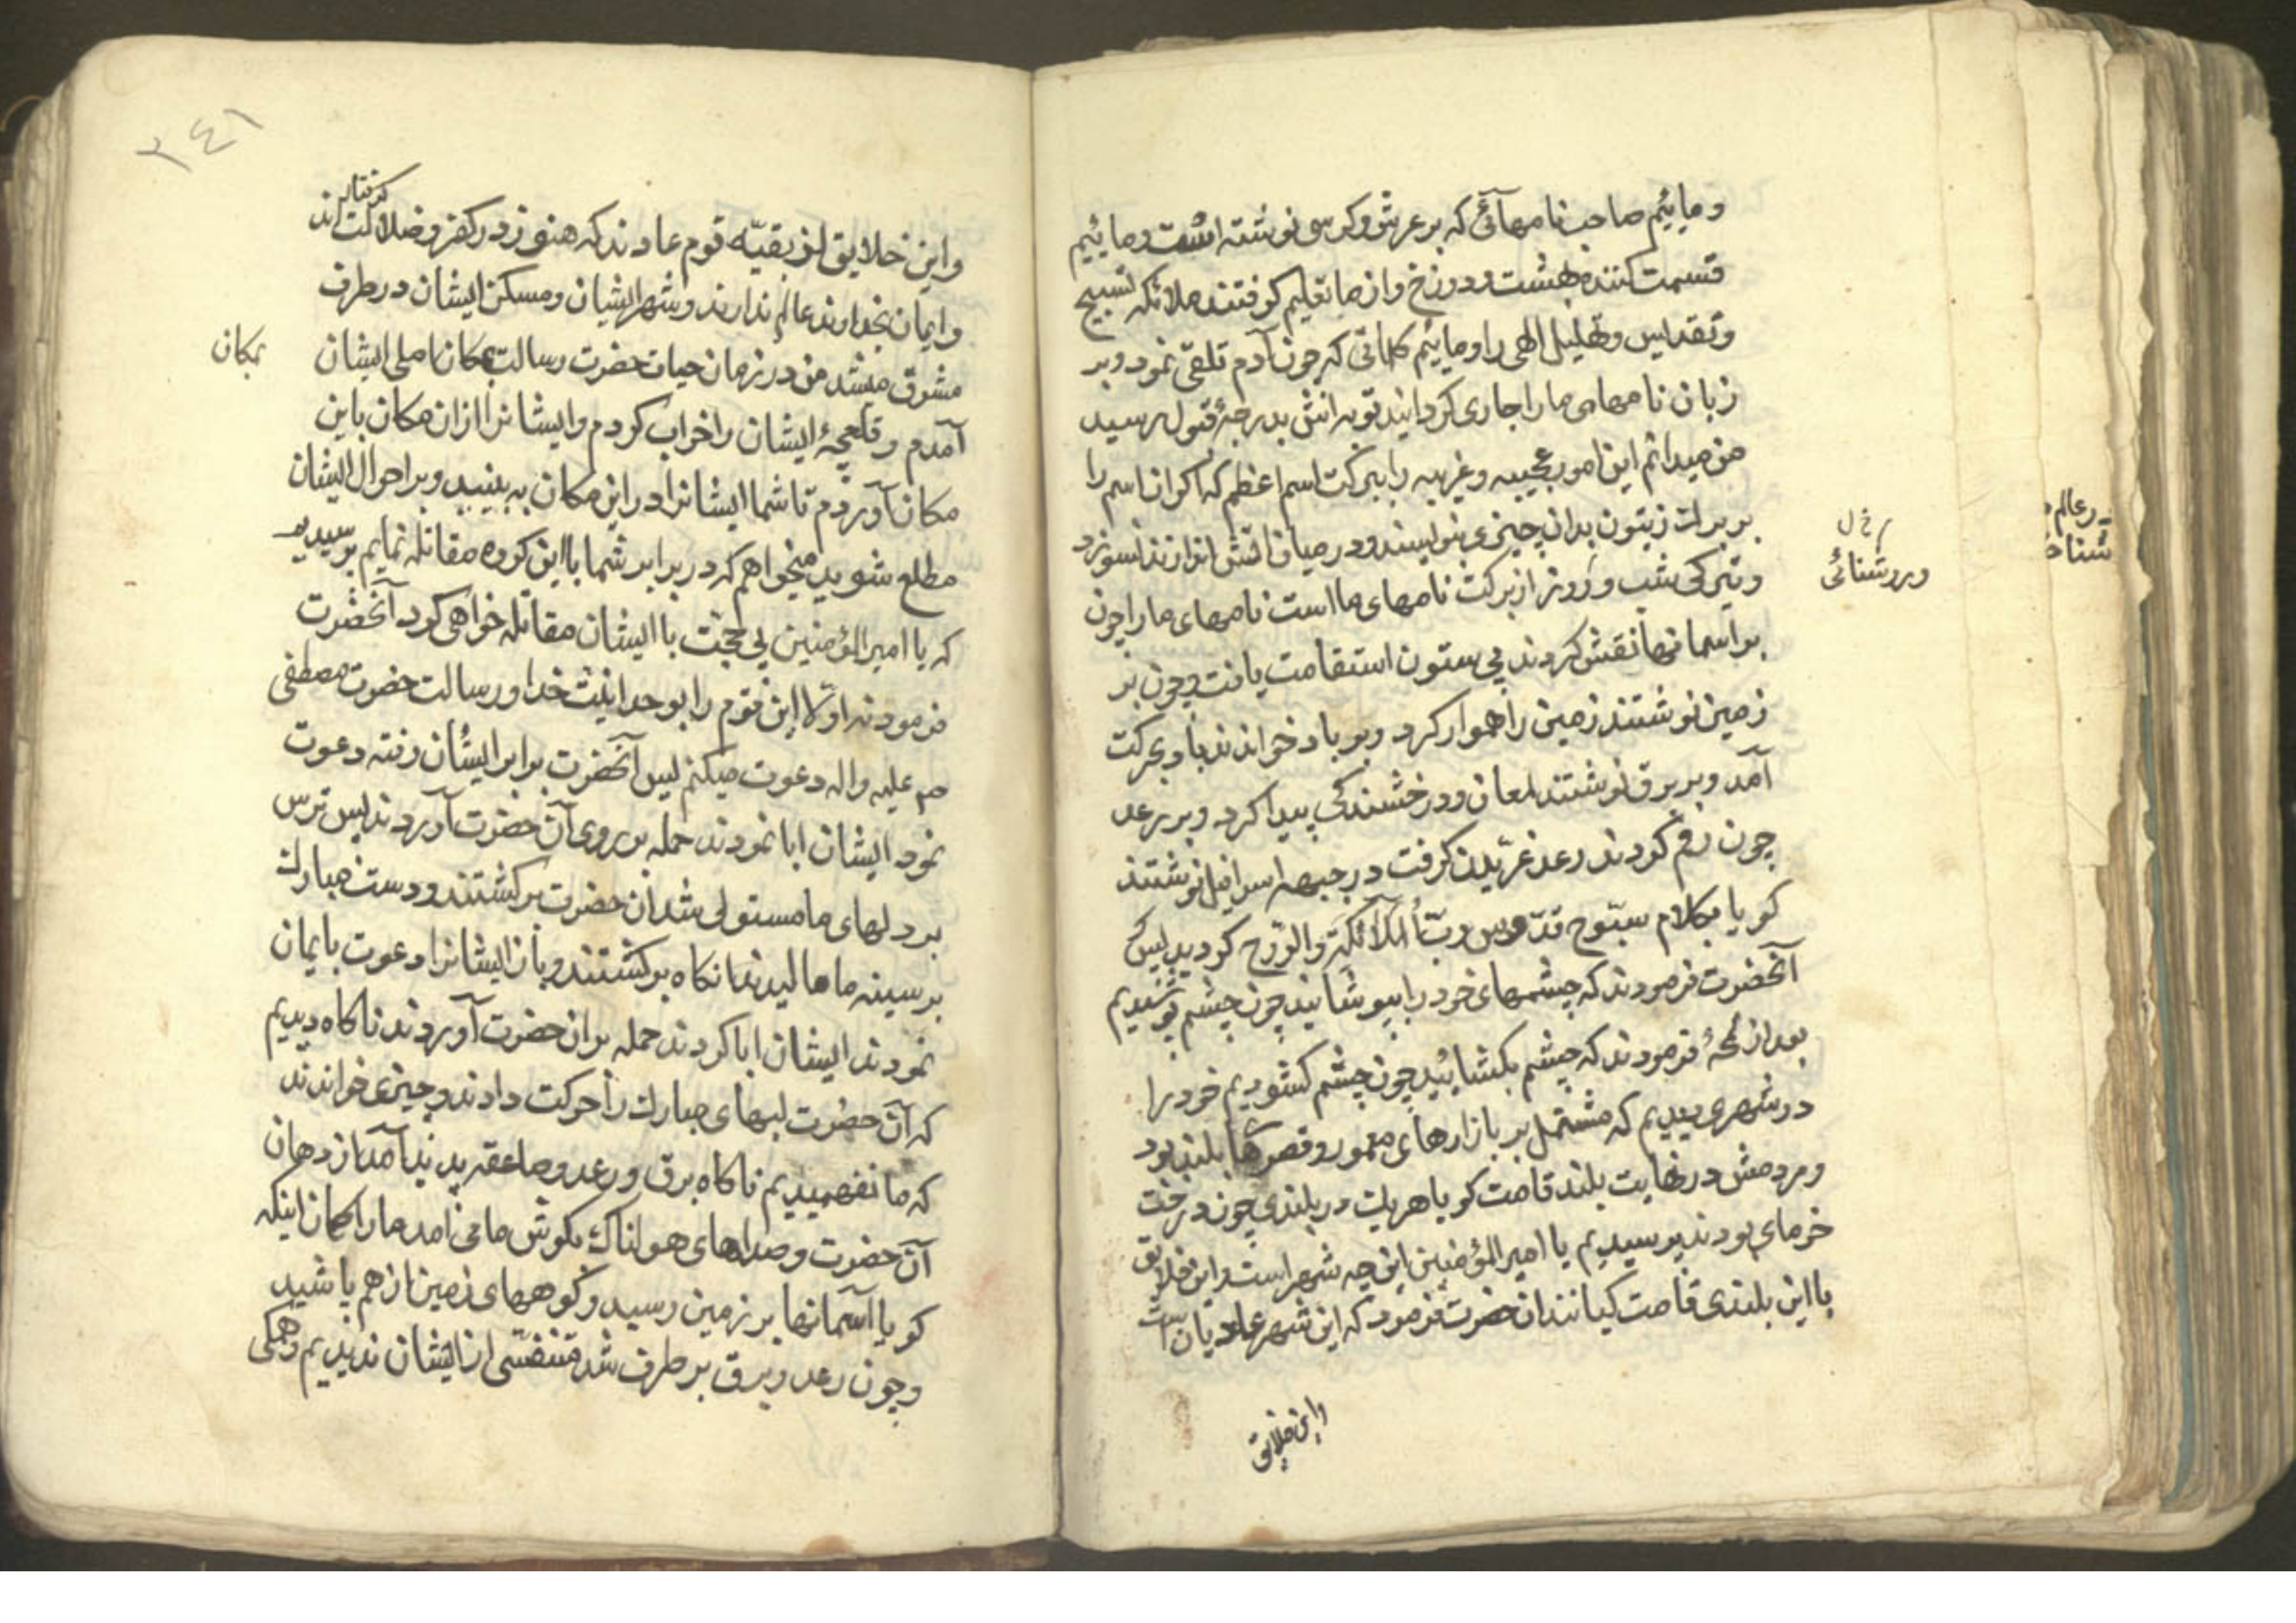 ومائیم صاحب نامهائی که بر عرش و کرسی نوشته است ومائیم
قسمت کننده بهشت ودوزخ واز ما تعلیم گرفتند ملائکه تسبیح
وتقدیس وتهلیل الهی را ومائیم کلماتی که چون آدم تلقی نمود وبر
زبان نامهای ما را جاری گردانید توبه‌اش بدرجهٔ قبول رسید
من میدانم این امور عجیبه وغریبه را ببرکت اسم اعظم که اکر ان اسم را
بر برك زیتون بدان چیزی بنویسند ودر میان اتش اندازند نسوزد
وتیرکی شب وروز از برکت نامهای ما است نامهای ما را چون
وروشنائی
بر اسمانها نقش کردند بی ستون استقامت یافت وچون بر
زمین نوشتند زمین را هموار کرد وبر باد خواندند باد بحرکت
آمد وبر برق نوشتند لمعان ودرخشندکی پیدا کرد وبر رعد
چون رقم کردند رعد غریدن کرفت در جبهه اسرافیل نوشتند
کویا بکلام سبّوح قدّوس ربّ الملآئکة والرّوح کردید پس
آنحضرت فرمودند که چشمهای خود را بپوشانید چون چشم پوشیدیم
بعد از لمحهٔ فرمودند که چشم بکشائید چون چشم کشودیم خود را
در شهری دیدیم که مشتمل بر بازارهای معمور وقصرهای بلند بود
ومردمش در نهایت بلند قامت کویا هریك در بلندی چون درخت
خرمای بودند پرسیدیم یا امیرالمؤمنین این چه شهر است واین خلایق
با این بلندی قامت کیانند ان حضرت فرمود که این شهر عادیان است
واین خلایق
رعالم
شناخ
۳٤۱
واین خلایق از بقیّه قوم عادند که هنوز در کفر وضلالت گرفتارند
وایمان بخداوند عالم ندارند وشهر ایشان ومسکن ایشان در طرف
مشرق میشد من در زمان حیات حضرت رسالت بمکان اصلی ایشان
بمکان
آمدم وقلعچهٔ ایشان را خراب کردم وایشانرا از ان مکان باین
مکان آوردم تا شما ایشانرا در این مکان به بینید وبر احوال ایشان
مطلع شوید میخواهم که در برابر شما با این کروه مقاتله نمایم پرسیدیم
که یا امیرالمؤمنین بی حجت با ایشان مقاتله خواهی کرد آنحضرت
فرمودند اوّلا این قوم را بوحدانیت خدا ورسالت حضرت مصطفی
صم علیه واله دعوت میکنم پس آنحضرت برابر ایشان رفته دعوت
نمود ایشان ابا نمودند حمله بر روی آن حضرت آوردند پس ترس
بر دلهای ما مستولی شد ان حضرت برکشتند ودست مبارك
بر سینه ما مالیدند انکاه برکشتند وباز ایشانرا دعوت بایمان
نمودند ایشان ابا کردند حمله بر ان حضرت آوردند ناکاه دیدیم
که آن حضرت لبهای مبارك را حرکت دادند وچیزی خواندند
که ما نفهمیدیم ناکاه برق ورعد وصاعقه پدید آمد از دهان
آن حضرت وصداهای هولناك بکوش ما می امد ما را کمان اینکه
کویا آسمانها بر زمین رسید وکوههای زمین از هم پاشید
وچون رعد وبرق بر طرف شد متنفسی از ایشان ندیدیم وهمکی